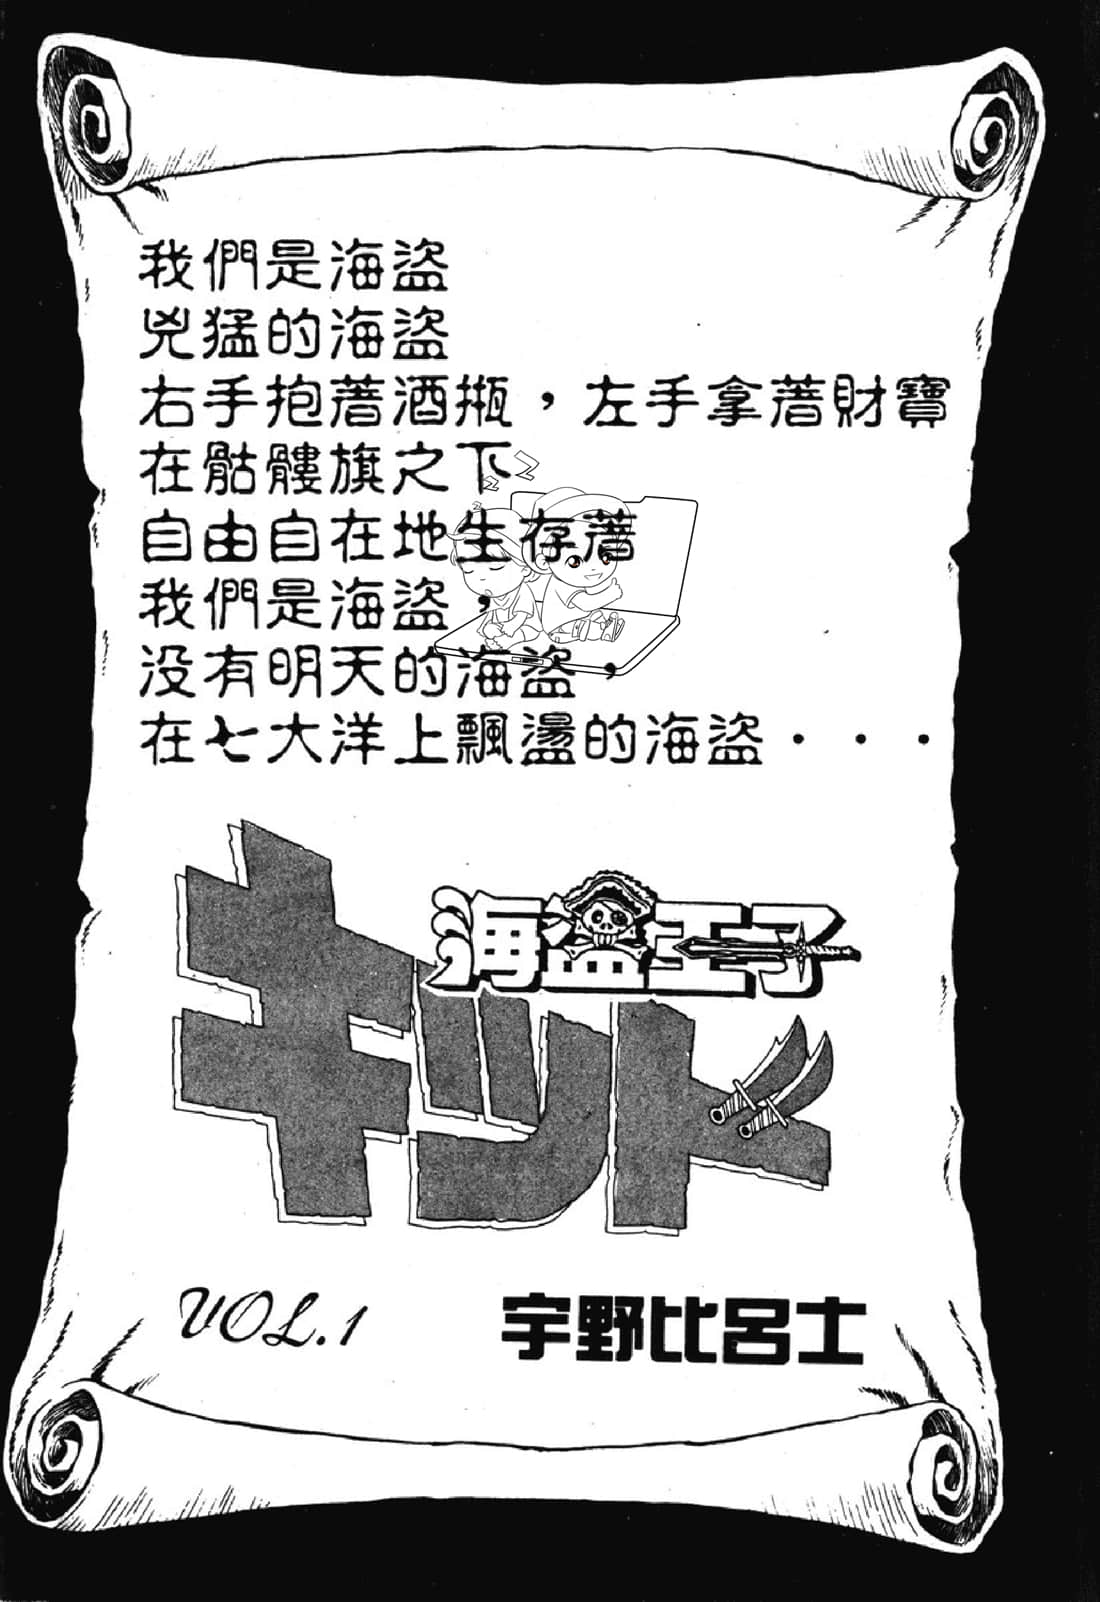 我們是海盜
兇猛的海盜
右手抱著酒瓶，左手拿著財寶
在骷髏旗之下
自由自在地生存著
我們是海盜，
没有明天的海盜，
在七大洋上飄盪的海盜・・・
海盜王子
キッド
VOL.1
宇野比呂士